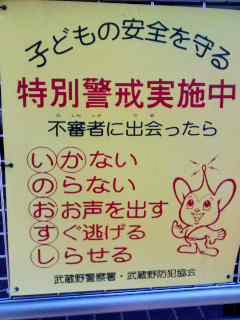 子どもの安全を守る
特別警戒実施中
不審者に出会ったら
いかない
のらない
おお声を出す
すぐ逃げる
しらせる
武蔵野警察署・武蔵野防犯協会